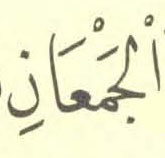 اَلْجَمْعَانِ